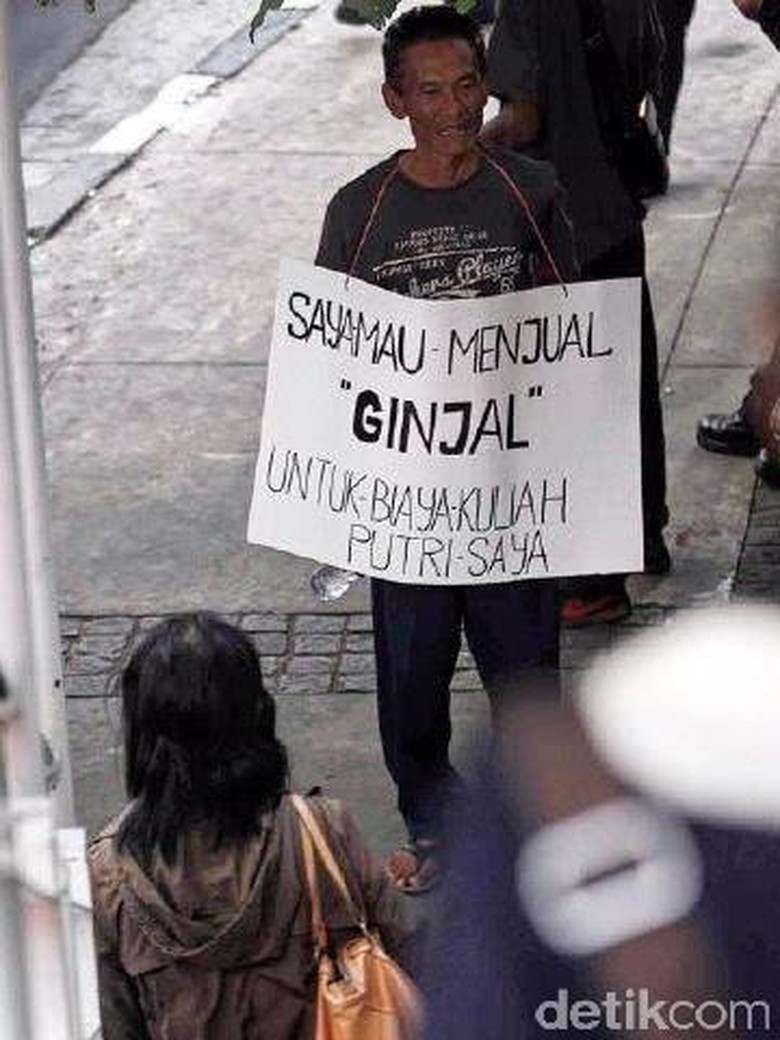 SAYA MAU - MENJUAL
"GINJAL"
UNTUK-BIAYA-KULIAH
PUTRI-SAYA
detikcom